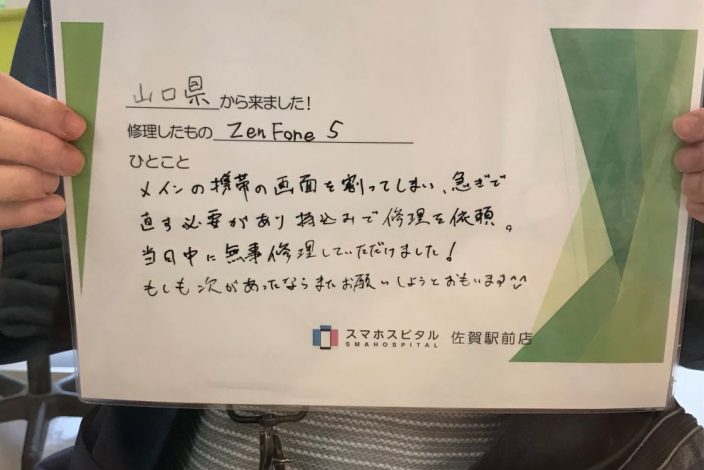 山口県から来ました!
修理したもの ZenFone 5
ひとこと
メインの携帯の画面を割ってしまい、急ぎで
直す必要があり持込みで修理を依頼。
当日中に無事修理していただけました!
もしも次があったならまたお願いしようとおもいます^^
スマホスピタル 佐賀駅前店
SMAHOSPITAL